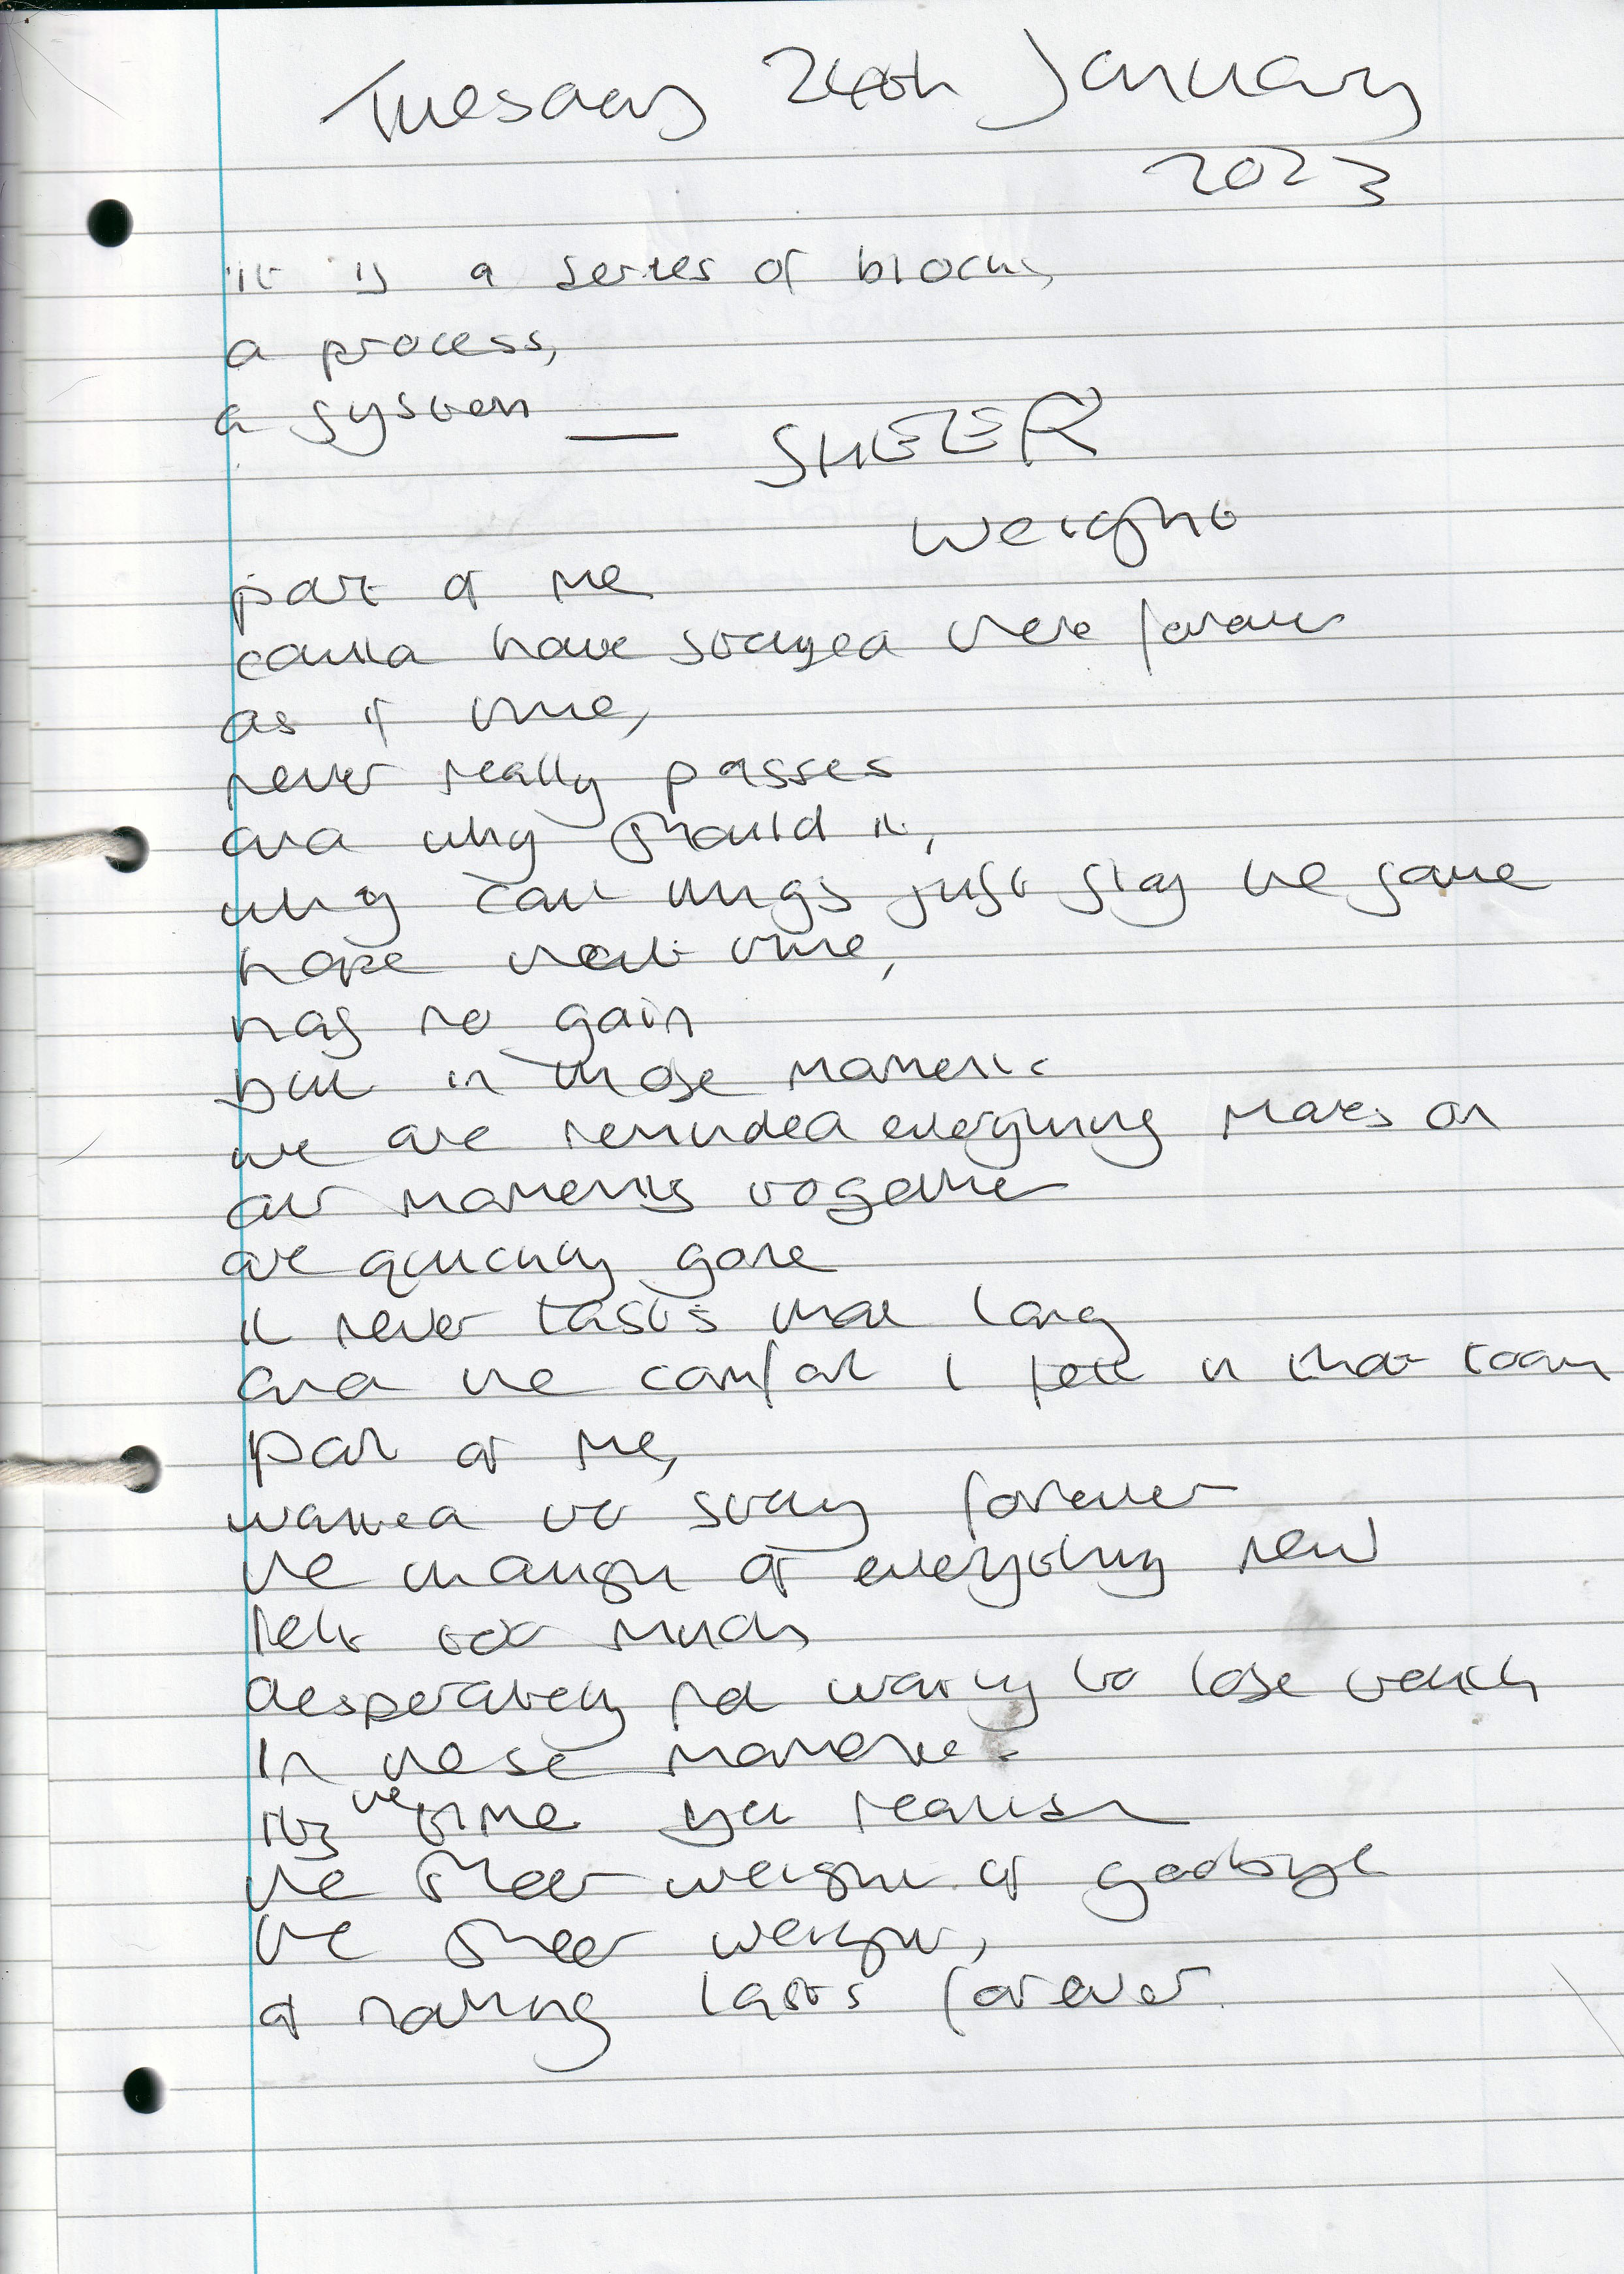 Tuesday 24th January
2023
it is a series of blocks
a process,
a system — SHEER
weight
part of me
could have stayed there forever
as if time,
never really passes
and why should it,
why can things just stay the same
hope next time,
has no gain
but in those moments
we are reminded everything moves on
our moments together
are quickly gone
it never lasts that long
and the comfort I felt in that room
part of me,
wanted to stay forever
the change of everything new
felt too much
desperately not wanting to lose touch
in these moments
its the time you realise
the sheer weight of goodbye
the sheer weight,
of nothing lasts forever.